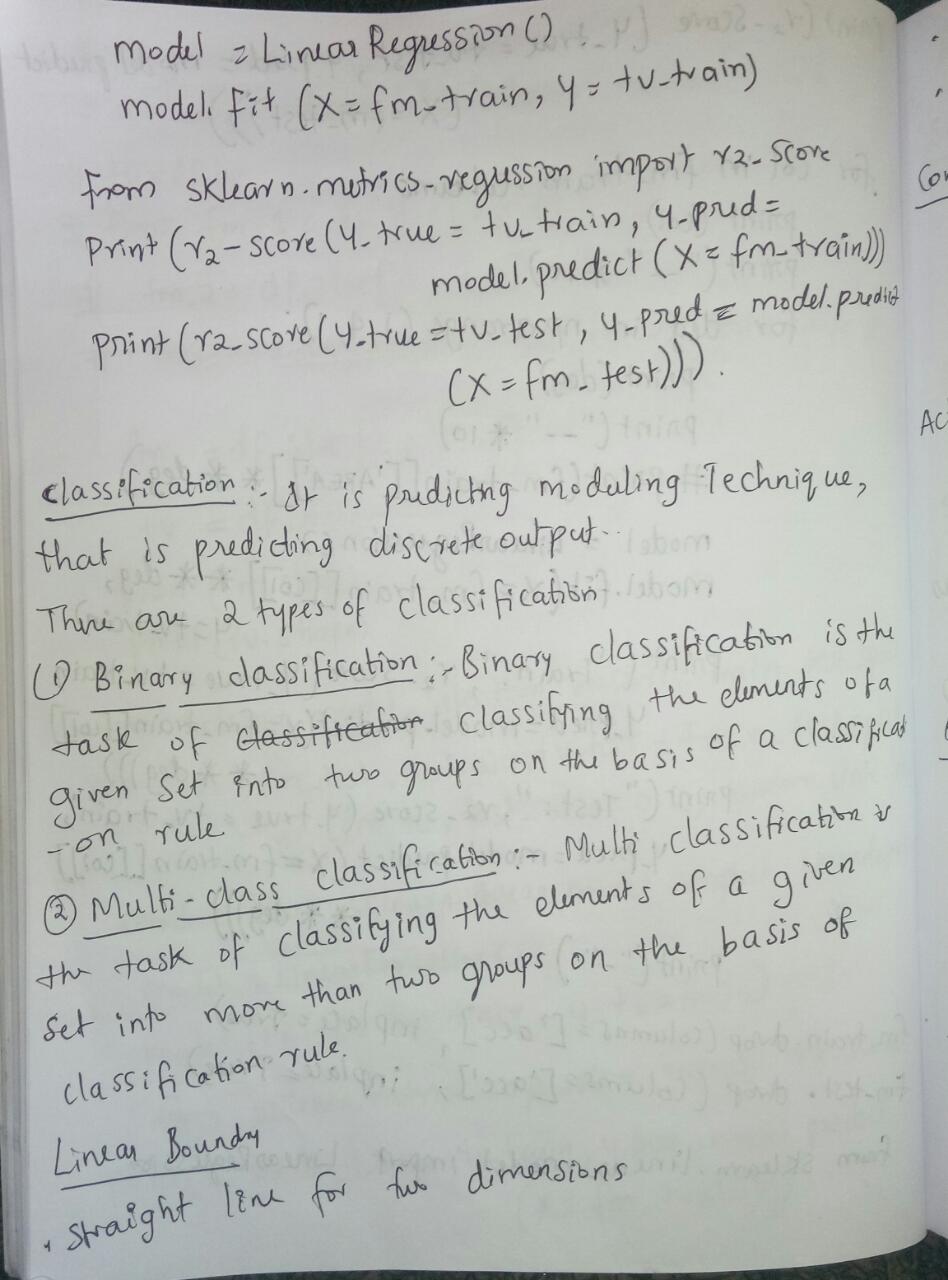 model = Linear Regression ()
model. fit (X = fm_train, y = tv_train)
from sklearn.metrics-regussion import r2_score
print (r2-score (y_true = tv_train, y_pred =
model.predict (X = fm_train)))
print (r2_score (y_true = tv_test, y_pred = model.predict
(X = fm_test))).
classification :- It is predictng moduling Technique,
that is predicting discrete output.
There are 2 types of classification
① Binary classification :- Binary classification is the
task of classification classifying the elements of a
given set into two groups on the basis of a classificat
-on rule
② Multi-class classification :- Multi classification is
the task of classifying the elements of a given
set into more than two groups on the basis of
classification rule.
Linear Boundry
straight line for two dimensions
Con
AC